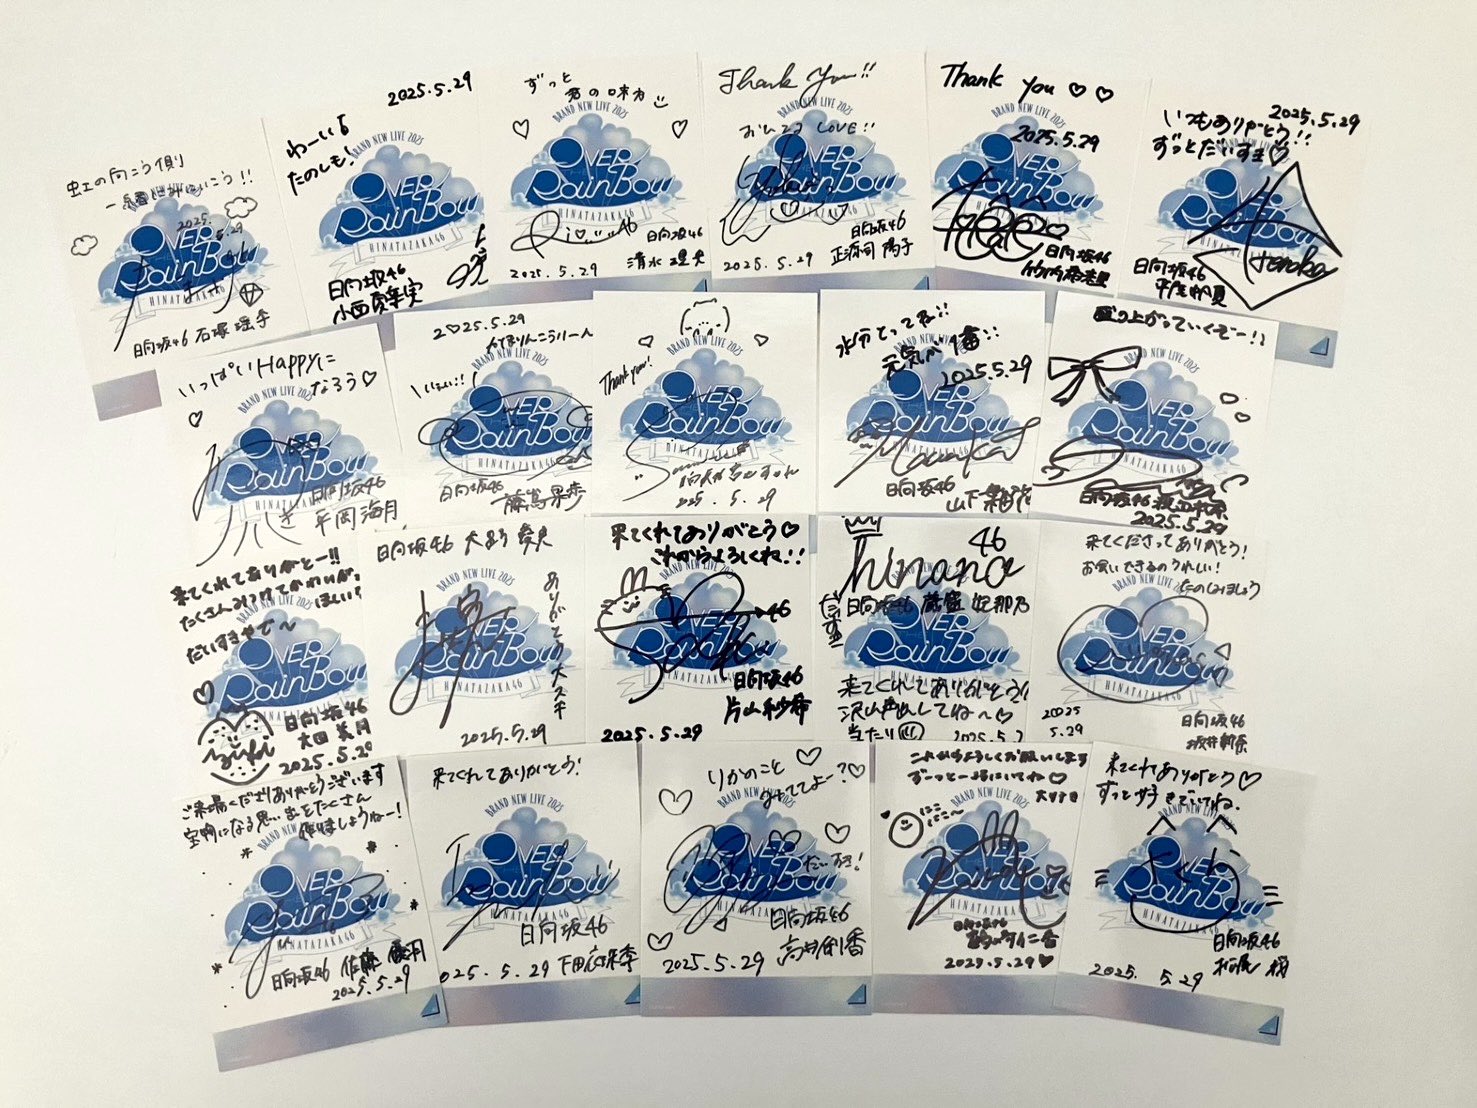 虹の向こう側
一緒に行こう!!
2025.
5.29
OVER
RainBow
HINATAZAKA46
日向坂46 石塚瑶季
2025.5.29
わーい
たのしも!
BRAND NEW LIVE 2025
OVER
RainBow
HINATAZAKA46
日向坂46
小西夏菜実
ずっと
君の味方
BRAND NEW LIVE 2025
OVER
RainBow
HINATAZAKA46
日向坂46
2025.5.29 清水理央
Thank you!!
BRAND NEW LIVE 2025
おひさま LOVE!!
OVER
RainBow
HINATAZAKA46
日向坂46
2025.5.29 正源司陽子
Thank you ♡♡
2025.5.29
OVER
RainBow
HINATAZAKA46
日向坂46
竹内希来里
2025.5.29
いつもありがとう!!
ずっとだいすき♡
OVER
RainBow
Hiroka
日向坂46
平尾帆夏
いっぱいHappyに
なろう♡
BRAND NEW LIVE 2025
OVER
RainBow
HINATAZAKA46
日向坂46
平岡海月
2025.5.29
かほりんこうりん
BRAND NEW LIVE 2025
OVER
RainBow
HINATAZAKA46
日向坂46
藤嶌果歩
Thank you!
BRAND NEW LIVE 2025
OVER
RainBow
HINATAZAKA46
日向坂46 宮地すみれ
2025.5.29
水分とってね!!
元気が1番!!
2025.5.29
OVER
RainBow
Haruka
日向坂46
山下葉留花
盛り上がっていくぞー!!
BRAND NEW LIVE 2025
OVER
RainBow
HINATAZAKA46
日向坂46 渡辺莉奈
2025.5.29
来てくれてありがとー!!
たくさん見つけてかわいがって
ほしい!
だいすきやで〜
OVER
RainBow
HINATAZAKA46
日向坂46
大田美月
2025.5.29
日向坂46 大野愛実
BRAND NEW LIVE 2025
ありがとう大スキ
OVER
RainBow
HINATAZAKA46
2025.5.29
来てくれてありがとう♡
これからよろしくね!!
46
OVER
RainBow
日向坂46
片山紗希
2025.5.29
46
hinano
日向坂46 蔵盛妃那乃
だいすき!!
OVER
RainBow
来てくれてありがとう!
沢山声出してね〜♡
当たり
2025.5.2
来てくださってありがとう!
お会いできるのうれしい!
たのしみましょう
OVER
RainBow
HINATAZAKA46
2025
5.29
日向坂46
坂井新奈
ご来場くださりありがとうございます
宝物になる思い出をたくさん
作りましょうねー!
BRAND NEW LIVE 2025
OVER
RainBow
HINATAZAKA46
日向坂46 佐藤優羽
2025.5.29
来てくれてありがとう!
BRAND NEW LIVE 2025
OVER
RainBow
HINATAZAKA46
日向坂46
025.5.29 下田衣珠季
りかのこと
みててよー?♡
BRAND NEW LIVE 2025
OVER
だい好き!
RainBow
HINATAZAKA46
日向坂46
2025.5.29 高井俐香
これからよろしくお願いします
ずーっと一緒にいてね♡
大好き
にこ
にこ〜
BRAND NEW LIVE 2025
OVER
RainBow
HINATAZAKA46
日向坂46
鶴崎仁香
2025.5.29♥
来てくれてありがとう♡
ずっと好きでいてね.
BRAND NEW LIVE 2025
さくら
OVER
RainBow
HINATAZAKA46
日向坂46
松尾桜
2025. 5.29